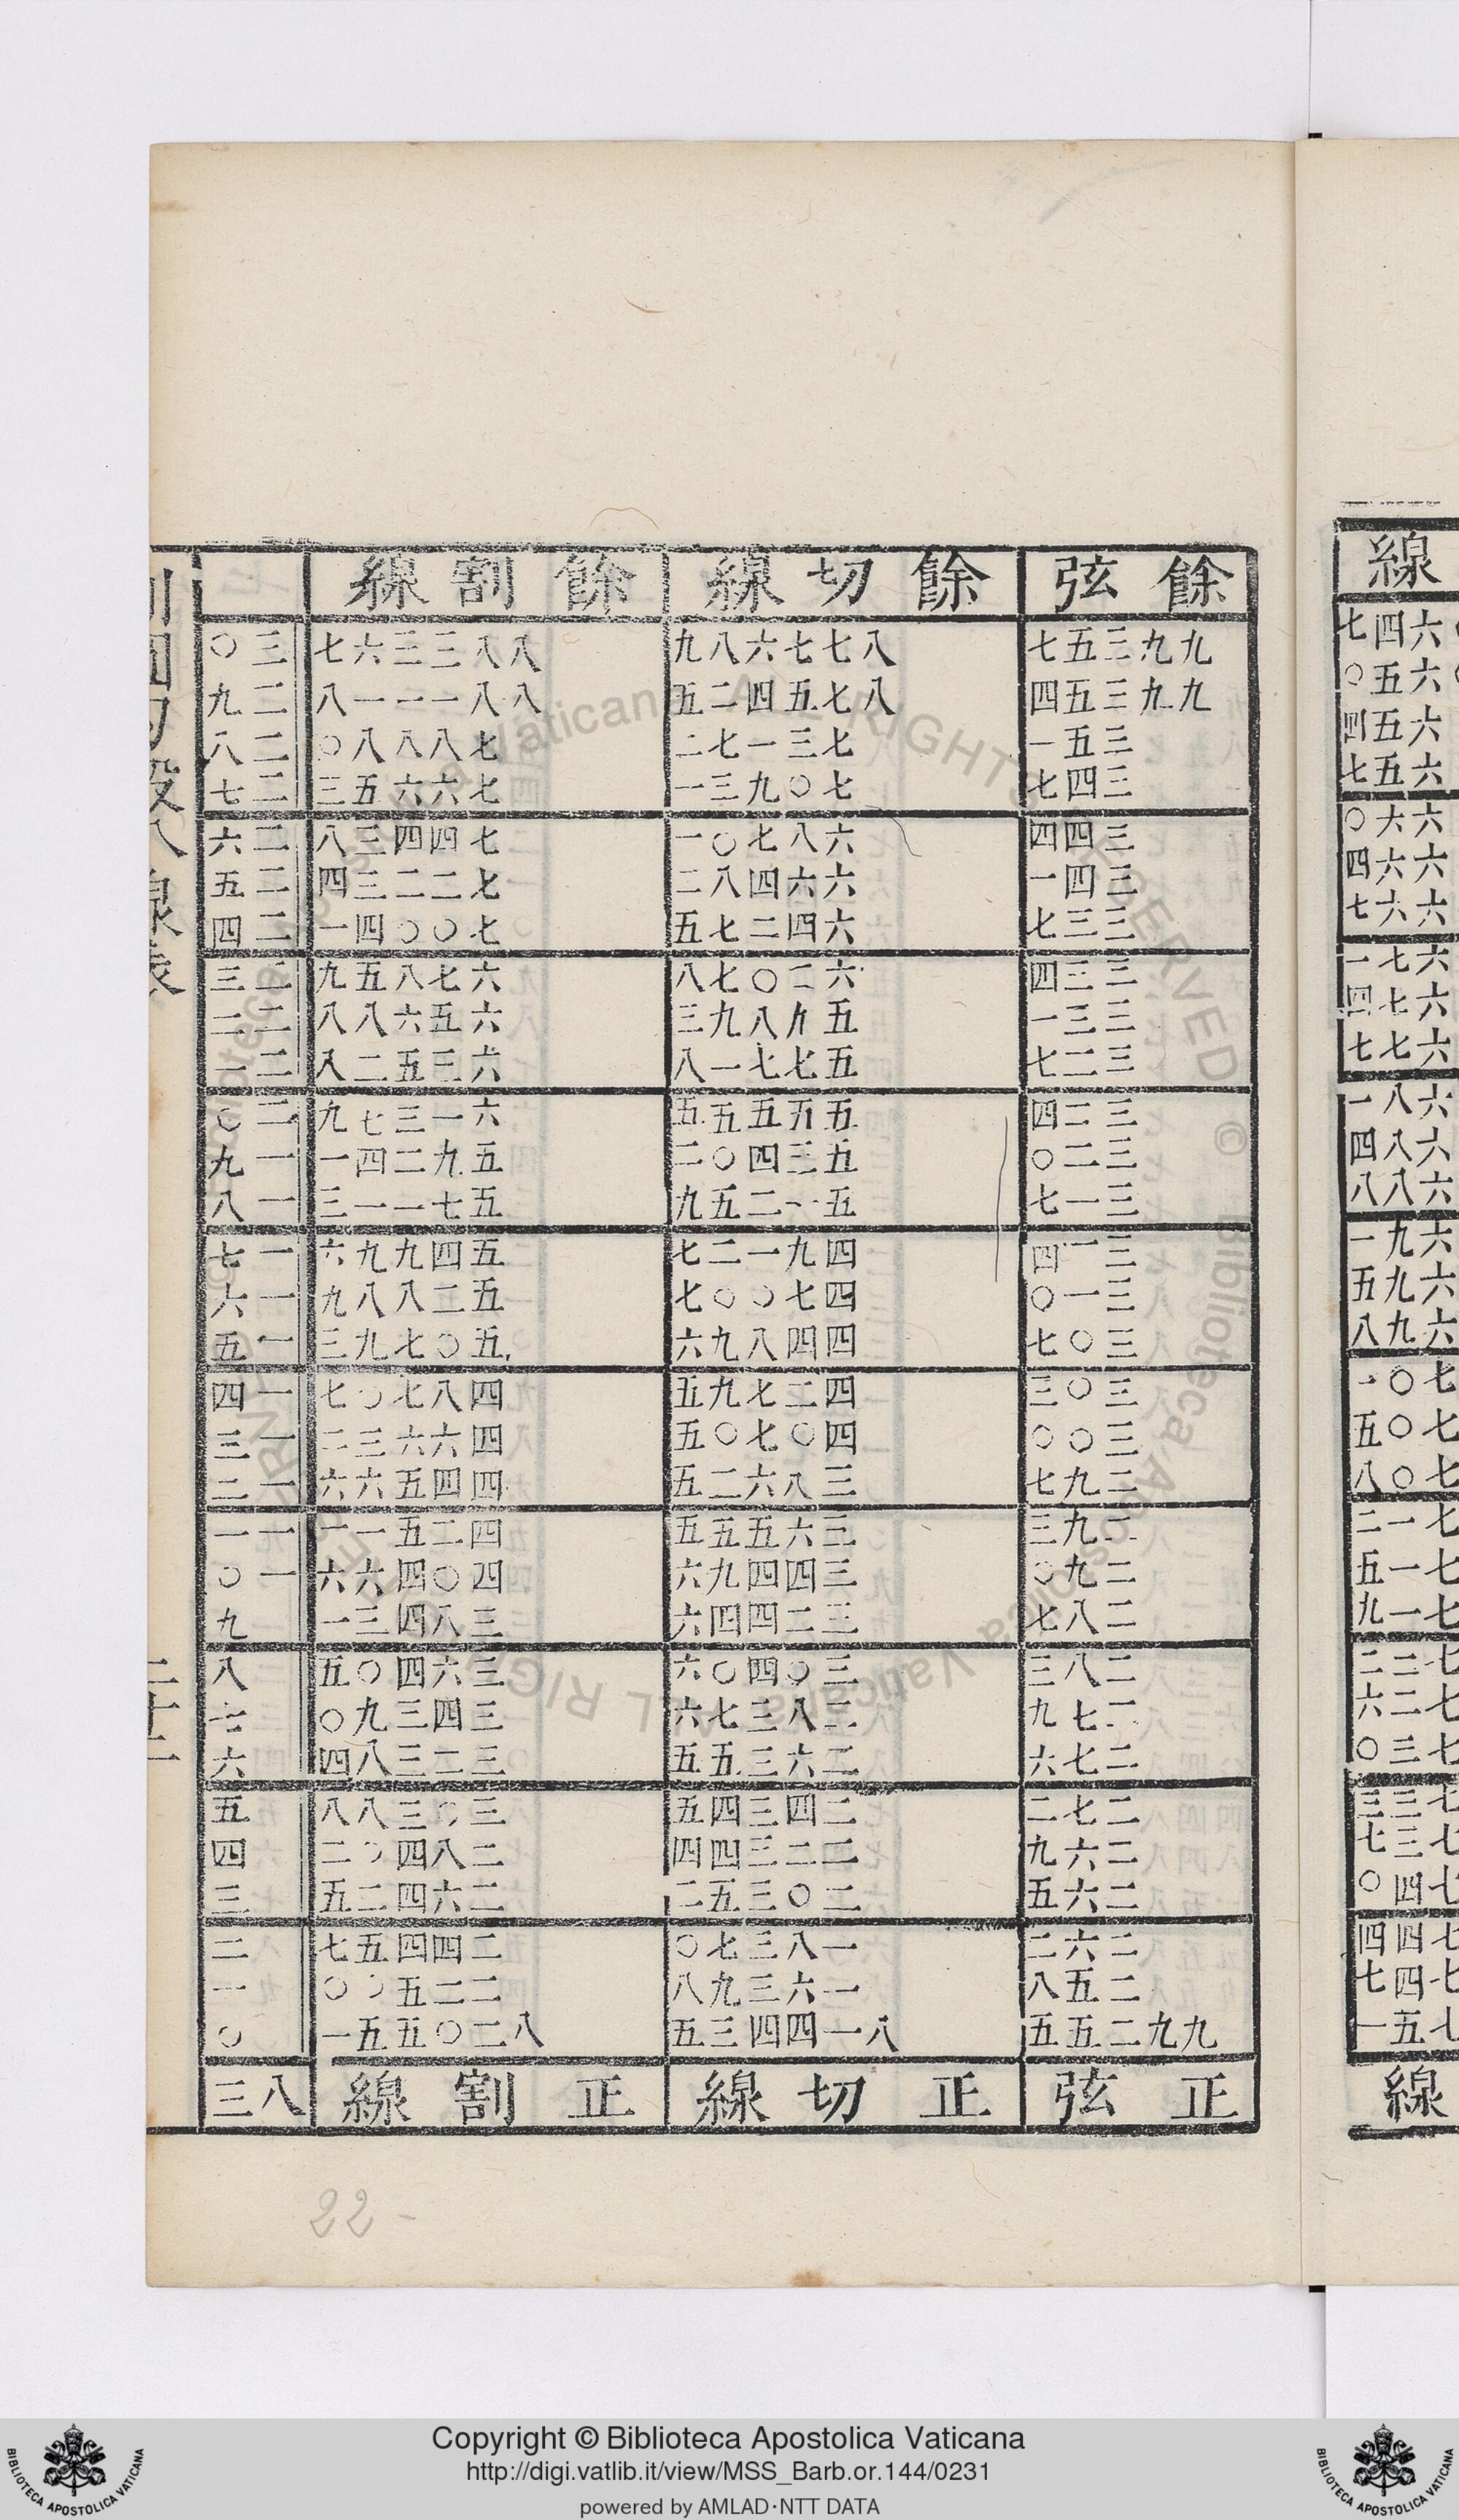 餘弦 餘切線 餘割線
九九三五七 八七七六八九 八八三三六七 三〇
九九三五四 八七五四二五 八八一一一八 二九
三五一 七三一七二 七八八八〇 二八
三四七 七〇九三一 七六六五三 二七
三四四 六八七〇一 七四四三八 二六
三四一 六六四八二 七二二三四 二五
三三七 六四二七五 七〇〇四一 二四
三三四 六二〇七八 六七八五九 二三
三三一 五九八九三 六五六八八 二二
三二七 五七七一八 六三五二八 二一
三二四 五五五五五 六一三七九 二〇
三二〇 五三四〇二 五九二四一 一九
三一七 五一二五九 五七一一三 一八
三一四 四九一二七 五四九九六 一七
三一〇 四七〇〇七 五二八八九 一六
三〇七 四四八九六 五〇七九三 一五
三〇三 四二七九五 四八七〇七 一四
三〇〇 四〇七〇五 四六六三二 一三
二九七 三八六二五 四四五六六 一二
二九三 三六五五五 四二五一一 一一
二九〇 三四四九六 四〇四六六 一〇
二八七 三二四四六 三八四三一 九
二八三 三〇四〇六 三六四〇五 八
二七九 二八三七六 三四三九〇 七
二七六 二六三五五 三二三八四 六
二七二 二四三四五 三〇三八八 五
二六九 二二三四四 二八四〇二 四
二六五 二〇三五二 二六四二五 三
二六二 一八三七〇 二四四五七 二
二五八 一六三九八 二二五〇〇 一
九九二五五 八一四四三五 八二〇五五一 〇
正弦 正切線 正割線 八三
割圓勾股八線表
二十二
22
Copyright © Biblioteca Apostolica Vaticana
http://digi.vatlib.it/view/MSS_Barb.or.144/0231
powered by AMLAD·NTT DATA